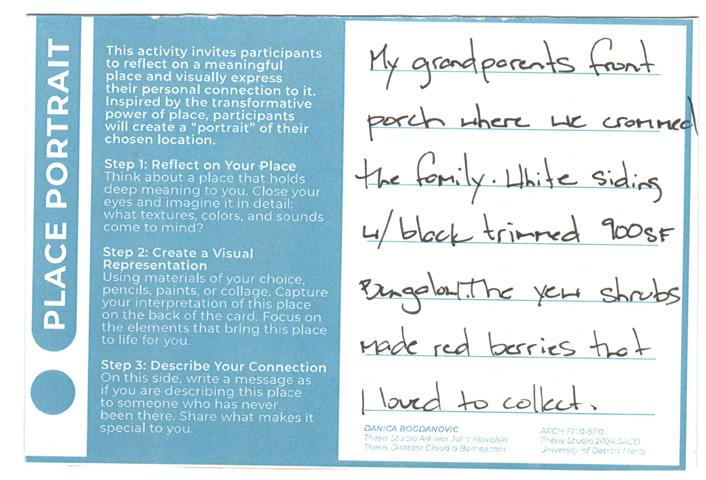 PLACE PORTRAIT
This activity invites participants
to reflect on a meaningful
place and visually express
their personal connection to it.
Inspired by the transformative
power of place, participants
will create a "portrait" of their
chosen location.
Step 1: Reflect on Your Place
Think about a place that holds
deep meaning to you. Close your
eyes and imagine it in detail:
what textures, colors, and sounds
come to mind?
Step 2: Create a Visual
Representation
Using materials of your choice,
pencils, paints, or collage. Capture
your interpretation of this place
on the back of the card. Focus on
the elements that bring this place
to life for you.
Step 3: Describe Your Connection
On this side, write a message as
if you are describing this place
to someone who has never
been there. Share what makes it
special to you.
My grandparents front
porch where we crammed
the family. White siding
w/ black trimmed 900SF
Bungalow. The yew shrubs
made red berries that
I loved to collect.
DANICA BOGDANOVIC
Thesis Studio Advisor Julia Kowalski
Thesis Director Claudio Bernasconi
ARCH 5100-5110
Thesis Studio 2024 SACD
University of Detroit Mercy